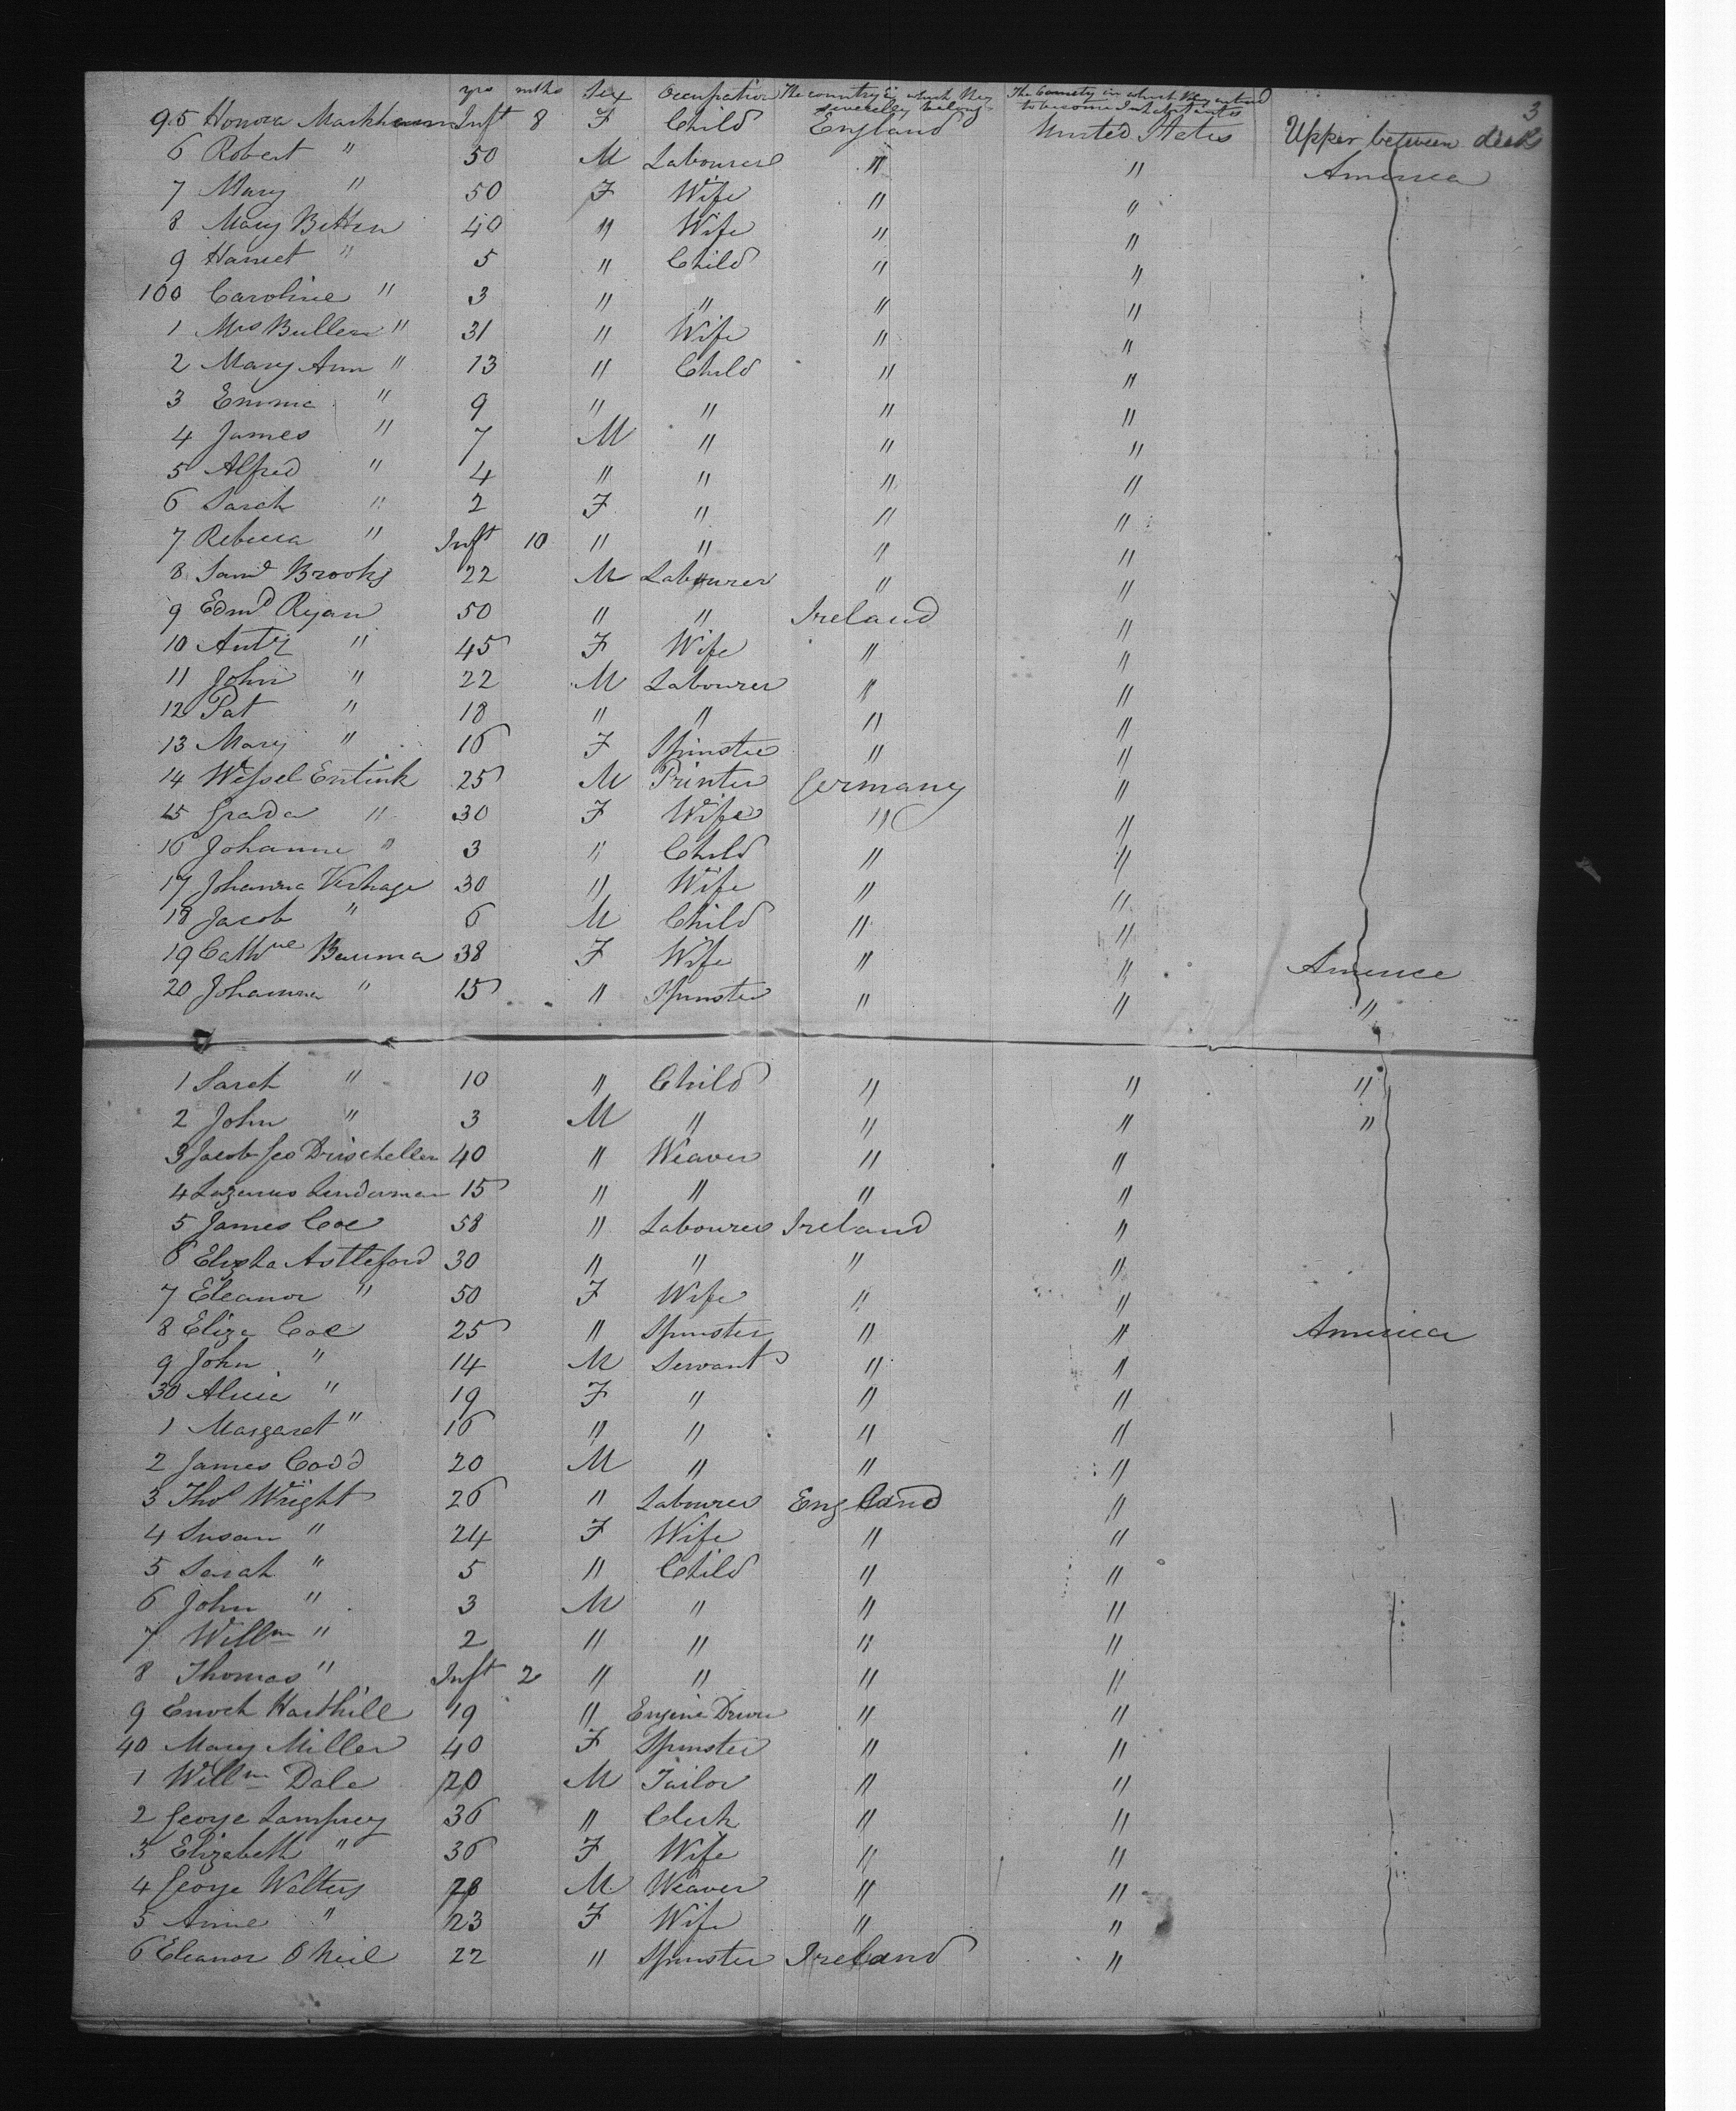 3
yrs mths Sex Occupation The country to which they severally belong The Country in which they intend to become Inhabitants
95 Honora Markham Inft 8 F Child England United States Upper between deck
6 Robert " 50 M Labourer " " America
7 Mary " 50 F Wife " "
8 Mary Betten 40 " Wife " "
9 Harriet " 5 " Child " "
100 Caroline " 3 " " " "
1 Mrs Bullen " 31 " Wife " "
2 Mary Ann " 13 " Child " "
3 Emma " 9 " " " "
4 James " 7 M " " "
5 Alfred " 4 " " " "
6 Sarah " 2 F " " "
7 Rebecca " Inft 10 " " " "
8 Saml Brooks 22 M Labourer " "
9 Edmd Ryan 50 " " Ireland "
10 " 45 F Wife " "
11 John " 22 M Labourer " "
12 Pat " 18 " " " "
13 Mary " 16 F Spinster " "
14 Wessel Entink 25 M Printer Germany "
15 Grada " 30 F Wife " "
16 Johanne " 3 " Child " "
17 Johanna Verhage 30 " Wife " "
18 Jacob " 6 M Child " "
19 Cathne Bauma 38 F Wife " " America
20 Johanna " 15 " Spinster " " "
1 Sarah " 10 " Child " " "
2 John " 3 M " " " "
3 Jacob Geo Drischeller 40 " Weaver " "
4 Lazarus Linderman 15 " " " "
5 James Coe 58 " Labourer Ireland "
6 Elisha Astleford 30 " " " "
7 Eleanor " 50 F Wife " "
8 Eliza Coe 25 " Spinster " " America
9 John " 14 M Servant " "
30 Alicia " 19 F " " "
1 Margaret " 16 " " " "
2 James Codd 20 M " " "
3 Thos Wright 26 " Labourer England "
4 Susan " 24 F Wife " "
5 Sarah " 5 " Child " "
6 John " 3 M " " "
7 Willm " 2 " " " "
8 Thomas " Inft 2 " " " "
9 Enoch Harthill 19 " Engine Driver " "
40 Mary Miller 40 F Spinster " "
1 Willm Dale 20 M Tailor " "
2 George Lamprey 36 " Clerk " "
3 Elizabeth " 36 F Wife " "
4 George Walters 28 M Weaver " "
5 Anne " 23 F Wife " "
6 Eleanor O Neil 22 " Spinster Ireland "